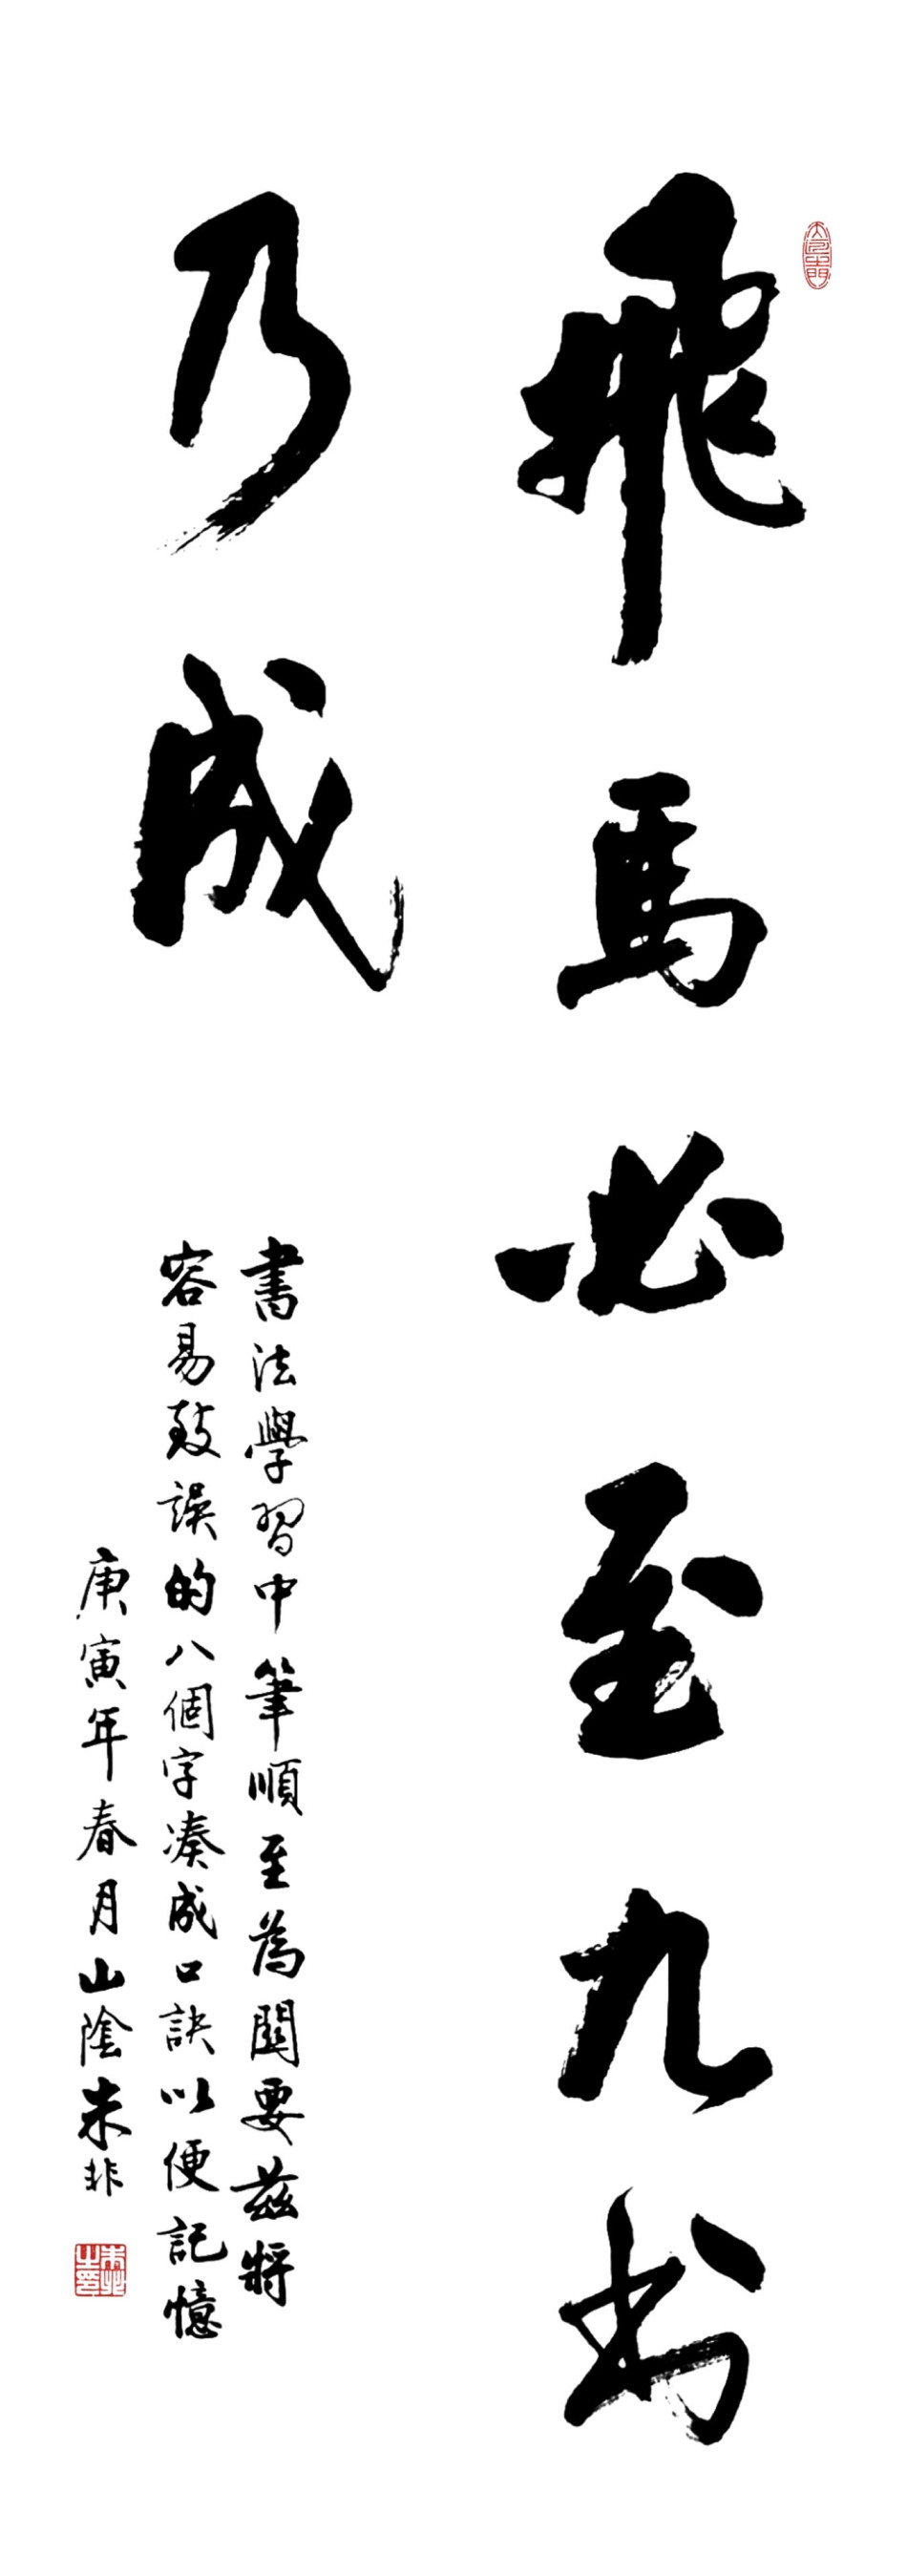 飛馬必至九州
乃成
書法學習中筆順至為關要茲將
容易致誤的八個字湊成口訣以便記憶
庚寅年春月山陰朱非